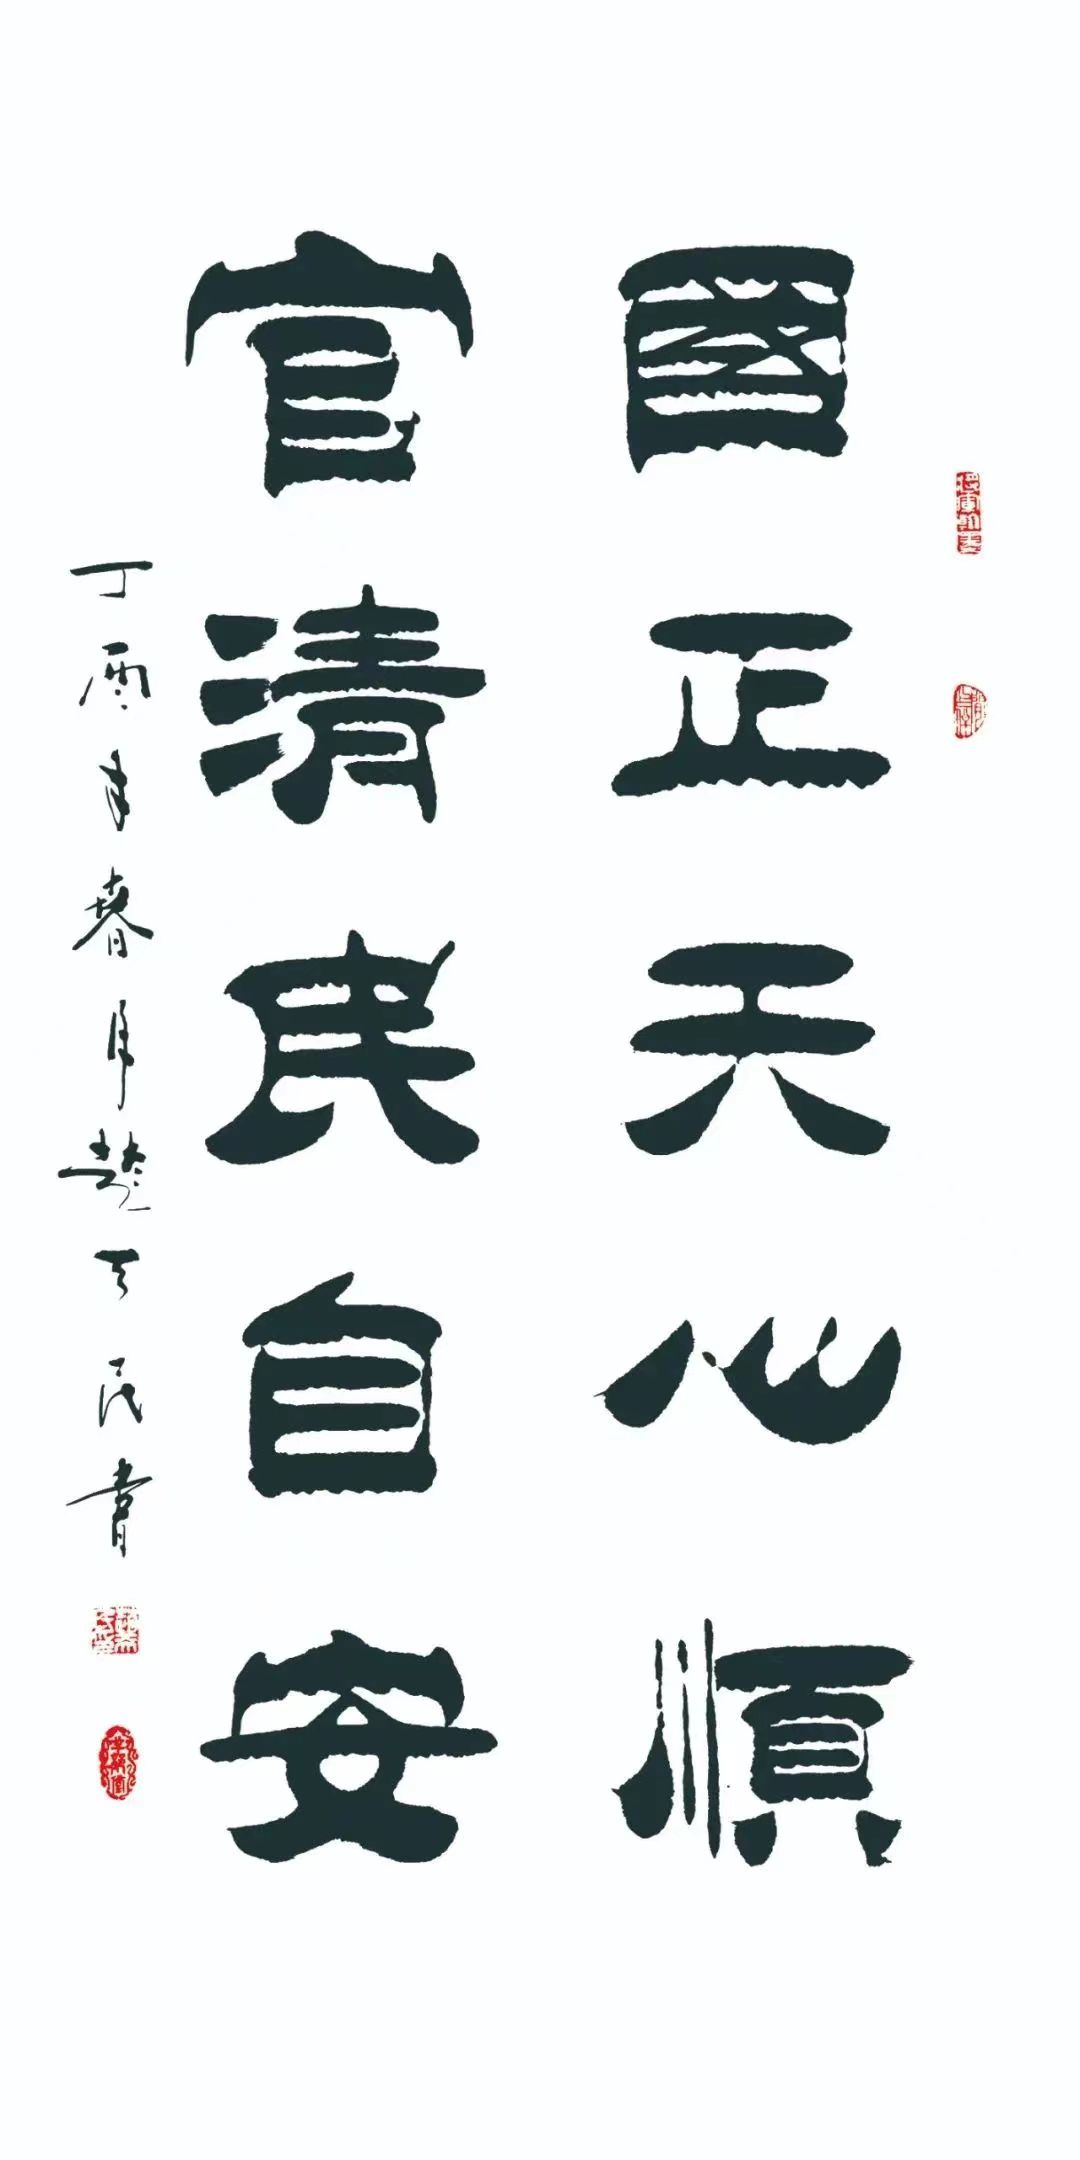 國正天心順
官清民自安
丁酉年春月楚天民書